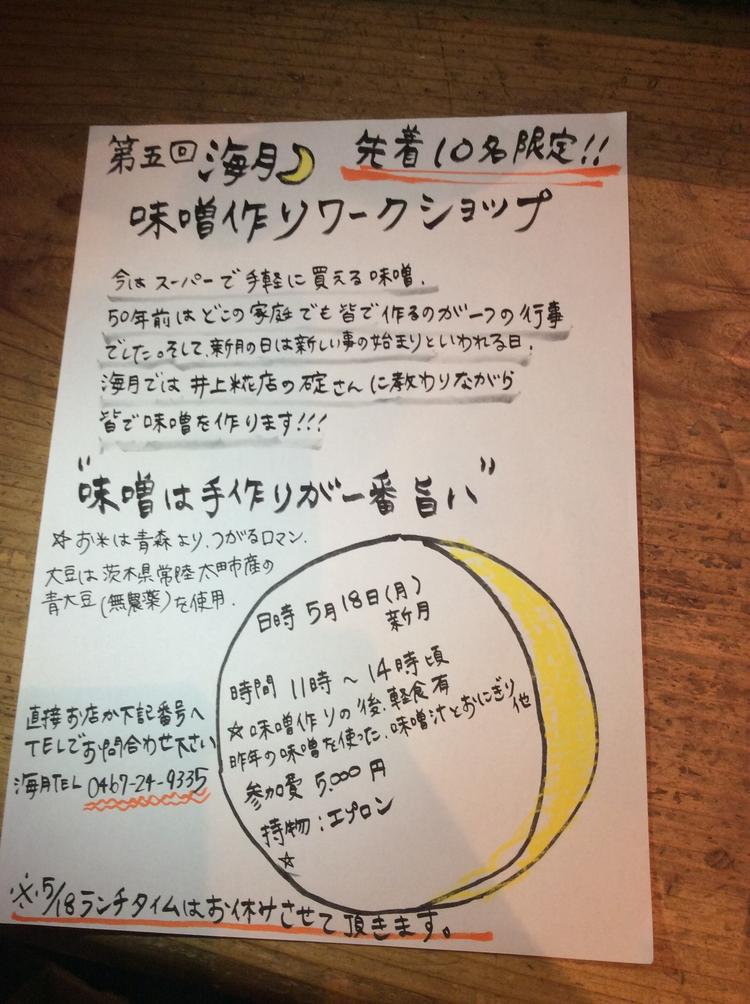 第五回 海月 先着10名限定!!
味噌作りワークショップ
今はスーパーで手軽に買える味噌.
50年前はどこの家庭でも皆で作るのが一つの行事
でした。そして、新月の日は新しい事の始まりといわれる日.
海月では 井上糀店の碇さんに教わりながら
皆で味噌を作ります!!!
"味噌は手作りが一番旨い"
☆お米は青森より、つがるロマン.
大豆は茨木県常陸太田市産の
青大豆(無農薬)を使用.
日時 5月18日(月)
新月
時間 11時〜14時頃
☆味噌作りの後、軽食有
昨年の味噌を使った、味噌汁とおにぎり他
参加費 5.000円
持物:エプロン
☆
直接お店か下記番号へ
TELでお問合わせ下さい
海月TEL 0467-24-9335
※5/18ランチタイムはお休みさせて頂きます。